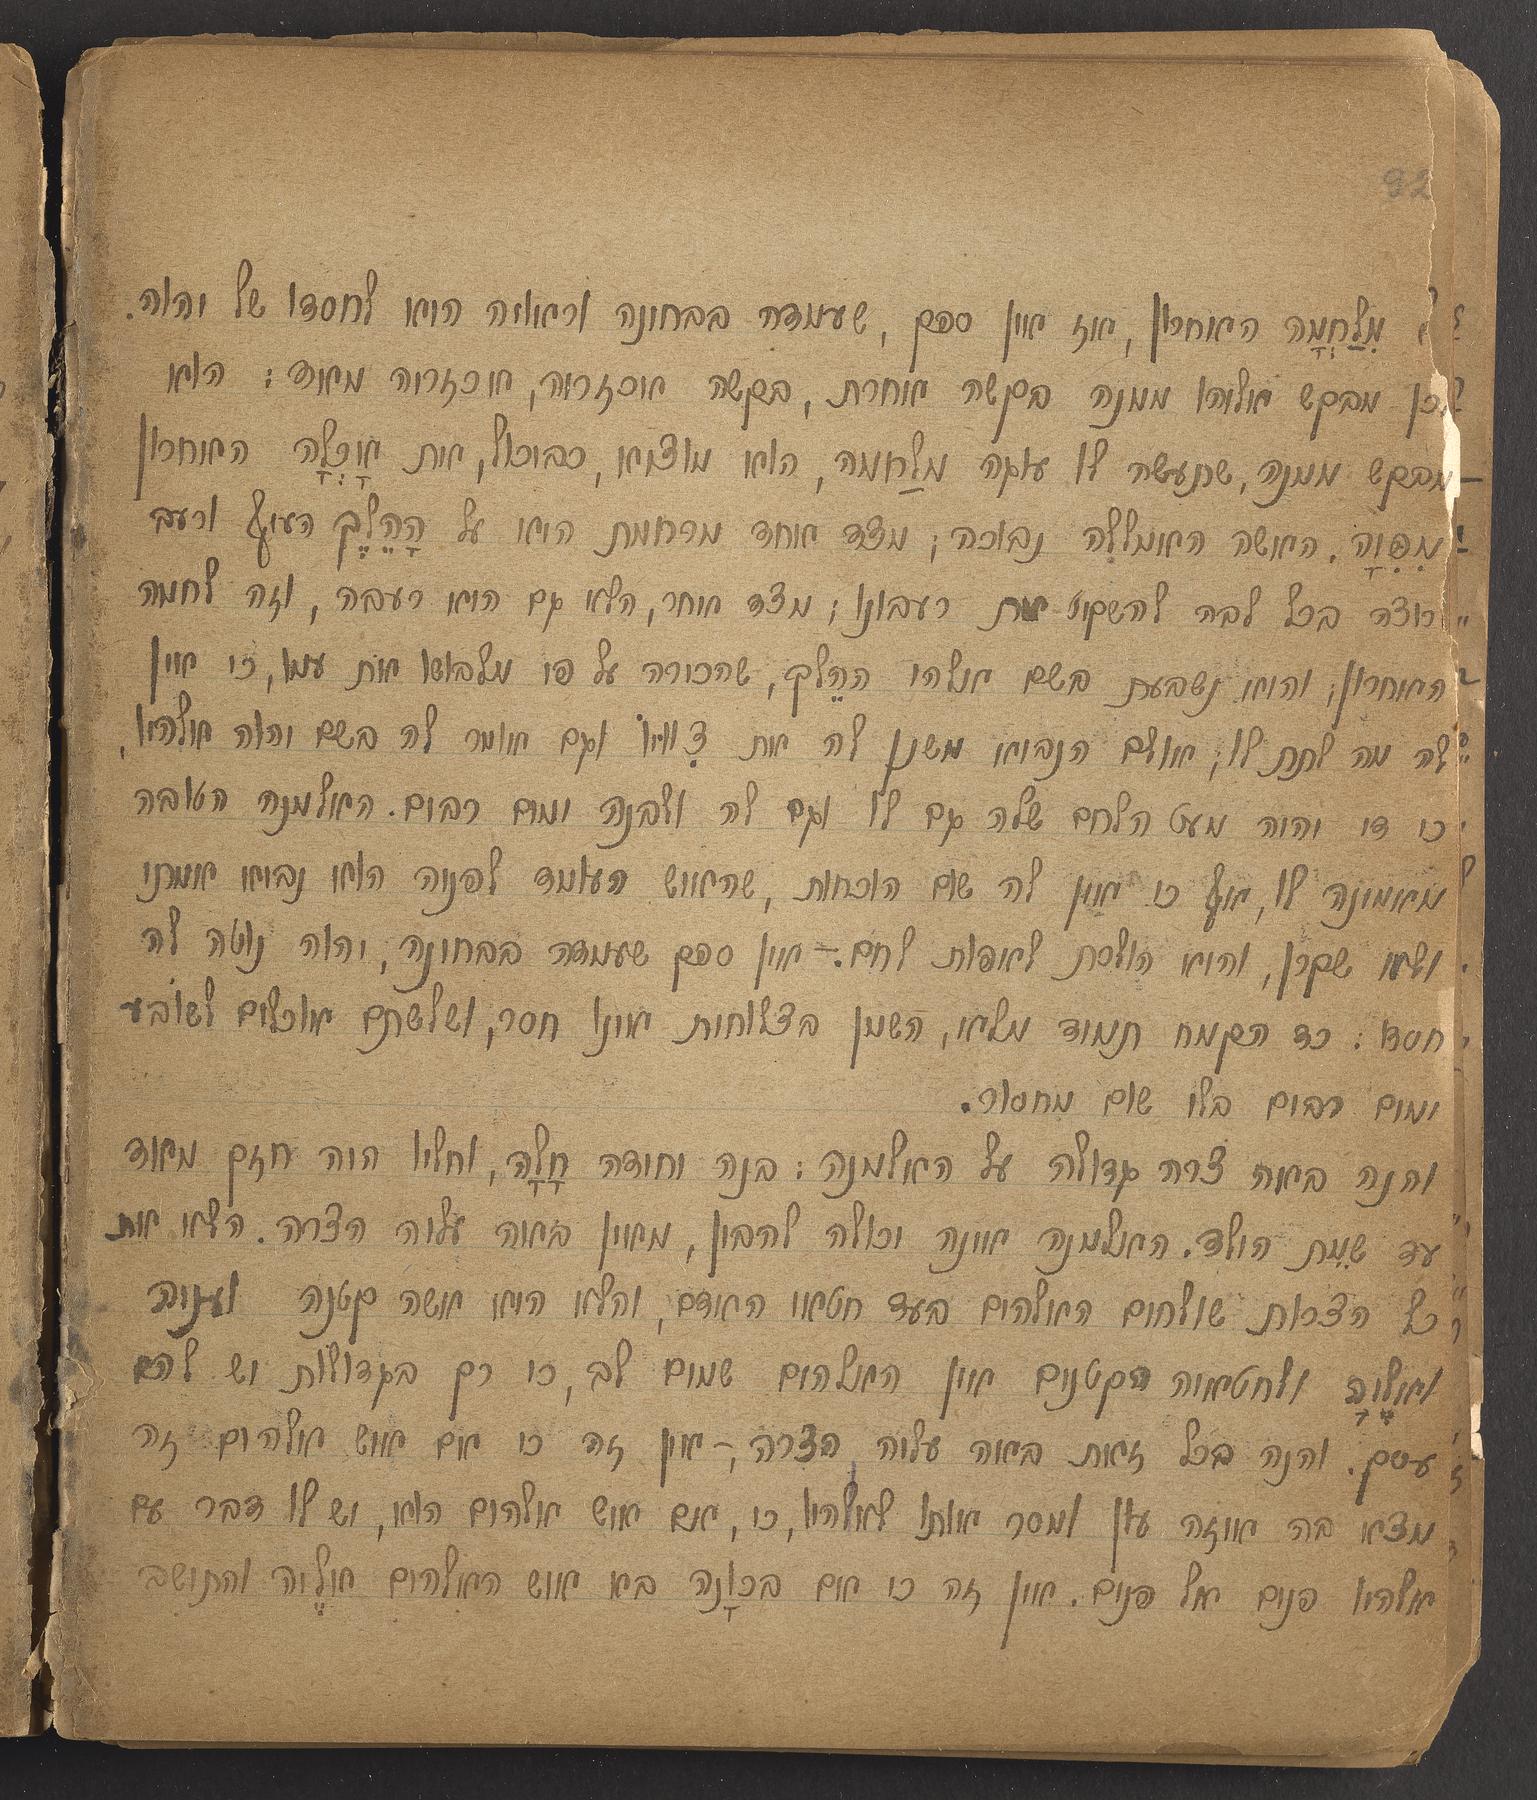 92
מִלַּחְמָהּ האחרון, אז אין ספק, שעמדה בבחינה וראויה היא לחסדו של יהוה.
לכן מבקש אליהו ממנה בקשה אחרת, בקשה אכזריה, אכזריה מאוד: הוא
מבקש ממנה, שתעשה לו עוגה מלַחמה, הוא מוציא, כביכול, את אָכְלָהּ האחרון
מִפִּיהָ. האשה האומללה נבוכה; מצד אחד מרחמת היא על הָהֵלֶךְ העיף ורעב
ורוצה בכל לבה להשקיט את רעבונו; מצד אחר, הלא גם היא רעבה, וזה לחמה
האחרון; והיא נשבעת בשם אלהי ההֵלך, שהכירה על פי מלבושו את עמו, כי אין
לה מה לתת לו; אולם הנביא משנן לה את צִוויו וגם אומר לה בשם יהוה אלהיו,
כי די יהיה מעט הלחם שלה גם לו וגם לה ולבנה ימים רבים. האלמנה הטובה
מאמינה לו, אף כי אין לה שום הוכחות, שהאיש העומד לפניה הוא נביא אמתי
ולא שקרן, והיא הולכת לאפות לחם. – אין ספק שעמדה בבחינה, יהוה נוטה לה
חסדו: כד הקמח תמיד מליא, השמן בצלוחית אינו חסר, ושלשתם אוכלים לשובע
ימים רבים בלי שום מחסור.
והנה באה צרה גדולה על האלמנה: בנה יחידה חָלָה, וחליו היה חזק מאוד
עד שֶמת הילד. האלמנה אינה יכולה להבין, מאין באה עליה הצרה. הלא את
כל הצרות שולחים האלהים בעד חטאי האדם, והלא היא אשה קטנה ועניה
ואֵלֶיהָ ולחטאיה הקטנים אין האלהים שמים לב, כי רק בגדולות יש להם
עסק. והנה בכל זאת באה עליה הצרה, – אין זה כי אם איש אלהים זה
מצא בה איזה עון ומסר אותו לאלהיו, כי, אם איש אלהים הוא, יש לו דבר עם
אלהיו פנים אל פנים. אין זה כי אם בכוָנה בא איש האלהים אלֶיה והתישב